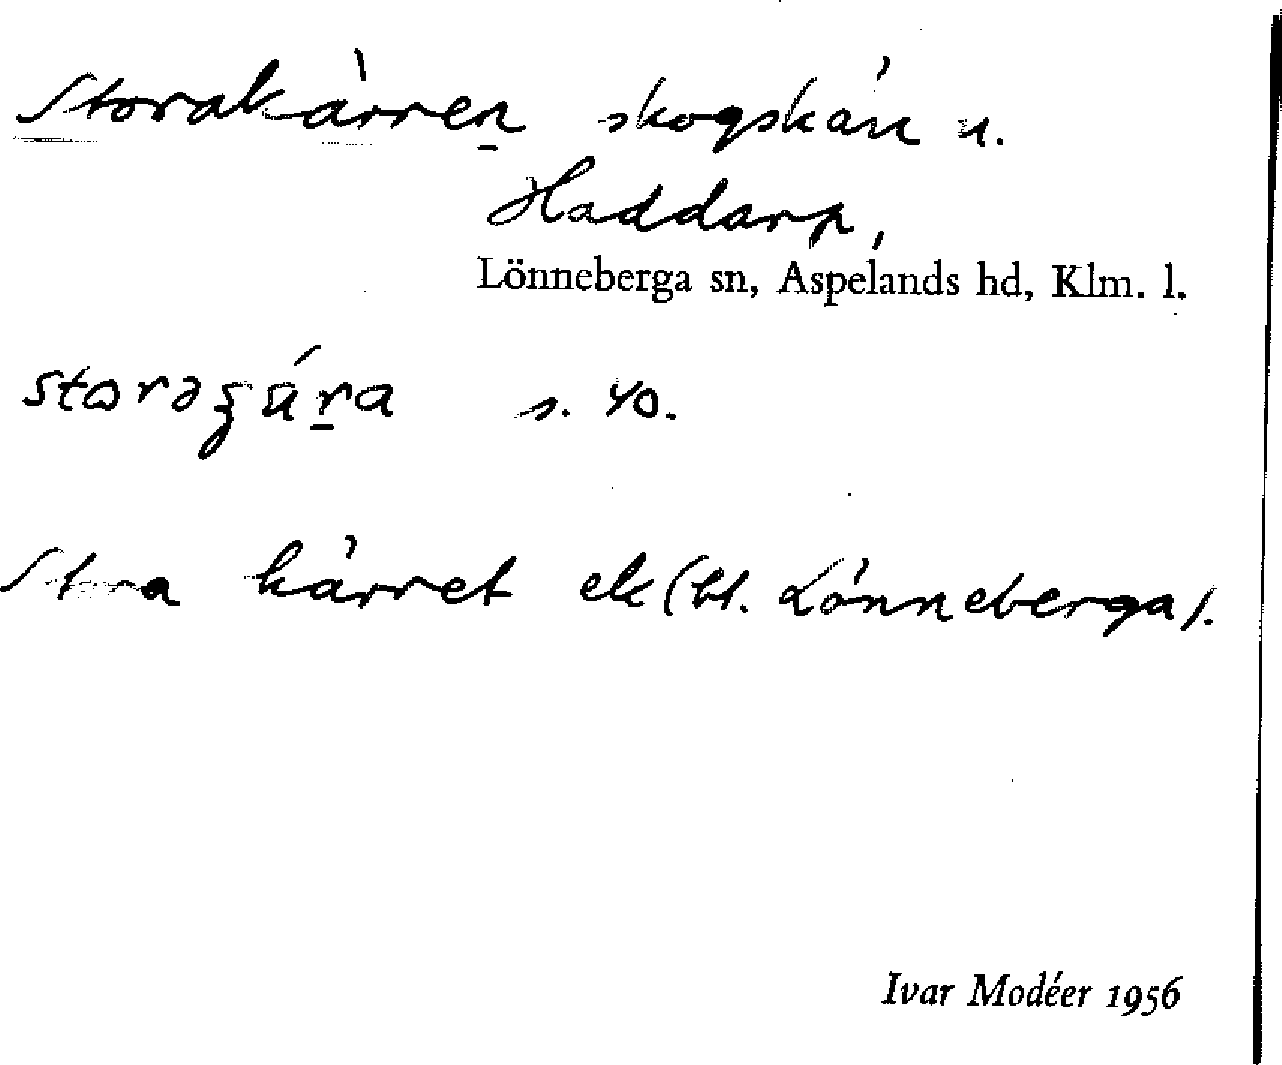 Storakärren skogskärr u.
Haddarp,
Lönneberga sn, Aspelands hd, Klm. l.
s. 40.
Stora kärret ek (bl. Lönneberga).
Ivar Modéer 1956